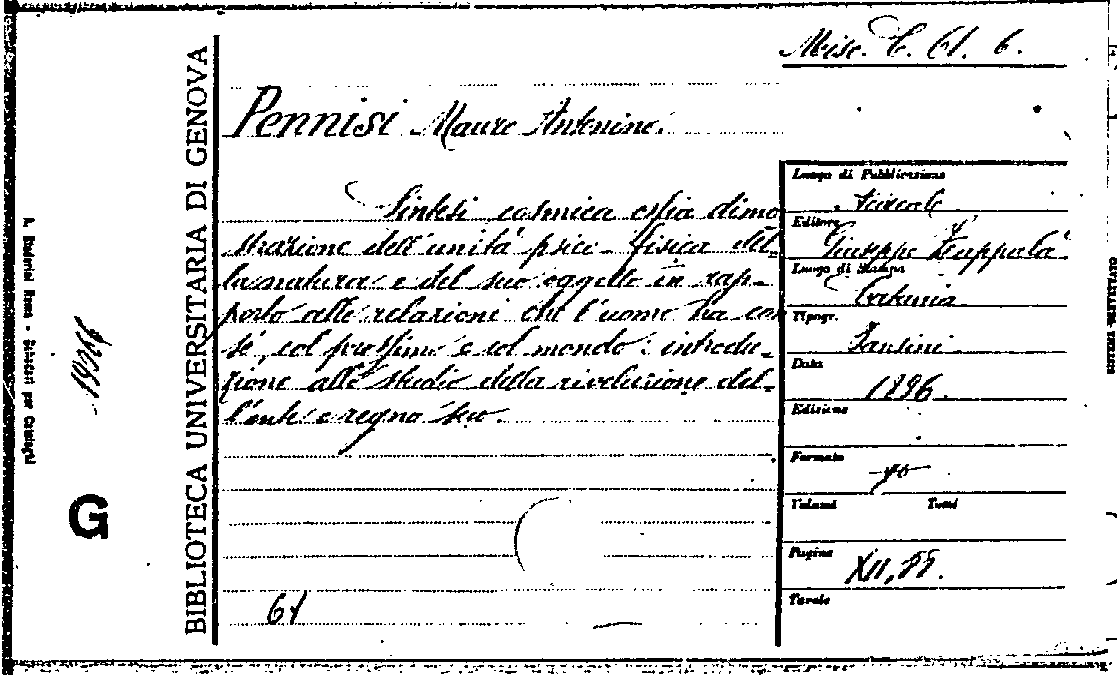 Misc. C. 61. 6.
Pennisi Mauro Antonino.
Sintesi cosmica ossia dimo
strazione dell'unità psico-fisica del-
la natura e del suo oggetto in rap-
porto alle relazioni che l'uomo ha con
sé, col prossimo e col mondo: introdu-
zione allo studio della rivoluzione del-
l'ente e regno suo.
61
Luogo di Pubblicazione
Acireale
Editore
Giuseppe Zappalà
Luogo di Stampa
Catania
Tipogr.
Data
1896.
Edizione
Formato
Volumi
Tomi
Pagine
Tavole
BIBLIOTECA UNIVERSITARIA DI GENOVA
G